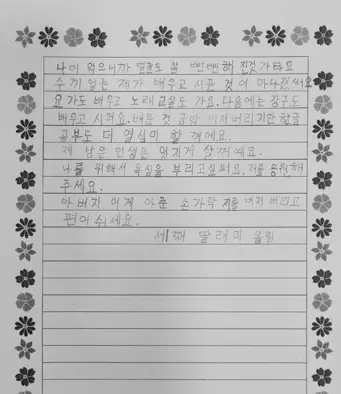 나이 먹으니까 얼굴도 좀 뻔뻔해 진것 가타요
수기 업든 제가 배우고 시픈 것이 마나졌써요
요가도 배우고 노래교실도 가요. 다음에는 장구도
배우고 시퍼요. 배운 것 금의 이저버리지만 한글
공부도 더 열심히 할 꺼에요.
제 남은 인생은 멋지게 살꺼예요.
나를 위해서 욕심을 부리고십퍼요. 저를 응원해
주세요.
아버지 이제 아픈 손가락 저를 이저버리고
편이쉬세요.
세째 딸래미 올림